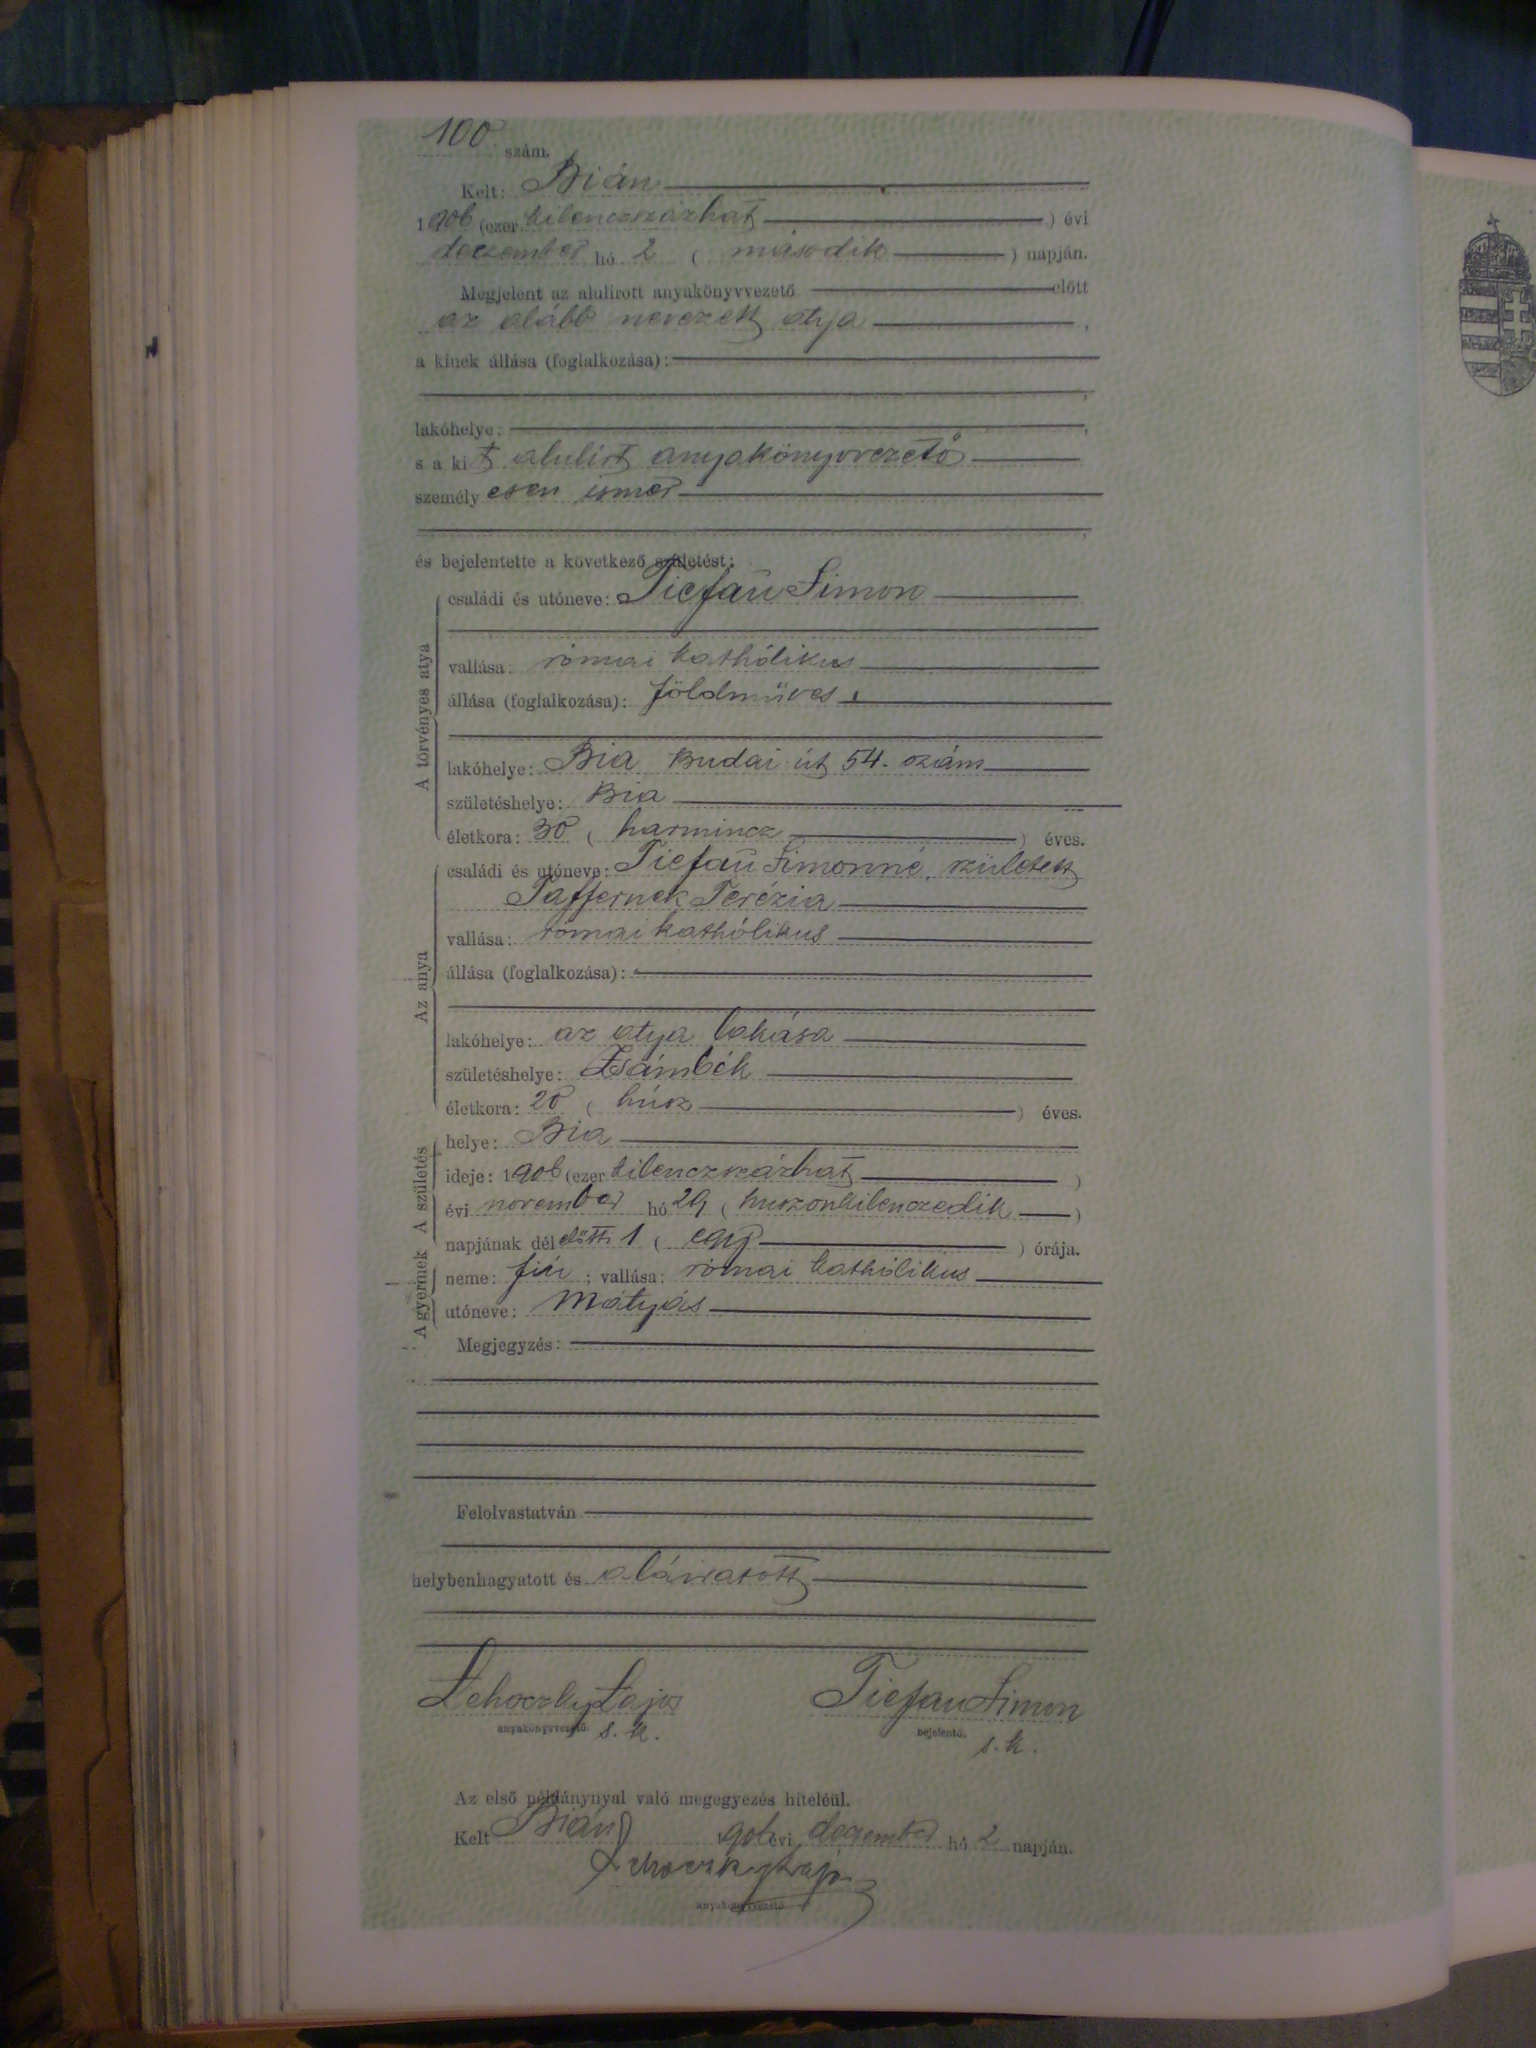 100 szám.
Kelt: Bián
1906 (ezer kilenczszázhat) évi
deczember hó 2 (második) napján.
Megjelent az alulirott anyakönyvvezető előtt
az alább nevezett atya,
a kinek állása (foglalkozása):
lakóhelye:
s a kit alulirt anyakönyvvezető
személyesen ismer
és bejelentette a következő születést:
A törvényes atya
családi és utóneve: Tiefau Simon
vallása: római kathólikus
állása (foglalkozása): földmüves
lakóhelye: Bia Budai út 54. szám
születéshelye: Bia
életkora: 30 (harmincz) éves.
Az anya
családi és utóneve: Tiefau Simonné, született
Taffernek Terézia
vallása: római kathólikus
állása (foglalkozása):
lakóhelye: az atya lakása
születéshelye: Zsámbék
életkora: 20 (húsz) éves.
A születés
helye: Bia
ideje: 1906 (ezer kilenczszázhat)
évi november hó 29 (huszonkilenczedik)
napjának délelőtti 1 (egy) órája.
A gyermek
neme: fiú; vallása: római kathólikus
utóneve: Mátyás
Megjegyzés:
Felolvastatván
helybenhagyatott és aláiratott
Lehoczky Lajos Tiefau Simon
anyakönyvvezető. s. k. bejelentő. s. k.
Az első példánynyal való megegyezés hiteléül.
Kelt Bián 1906 évi deczember hó 2 napján.
Lehoczky Lajos
anyakönyvvezető.